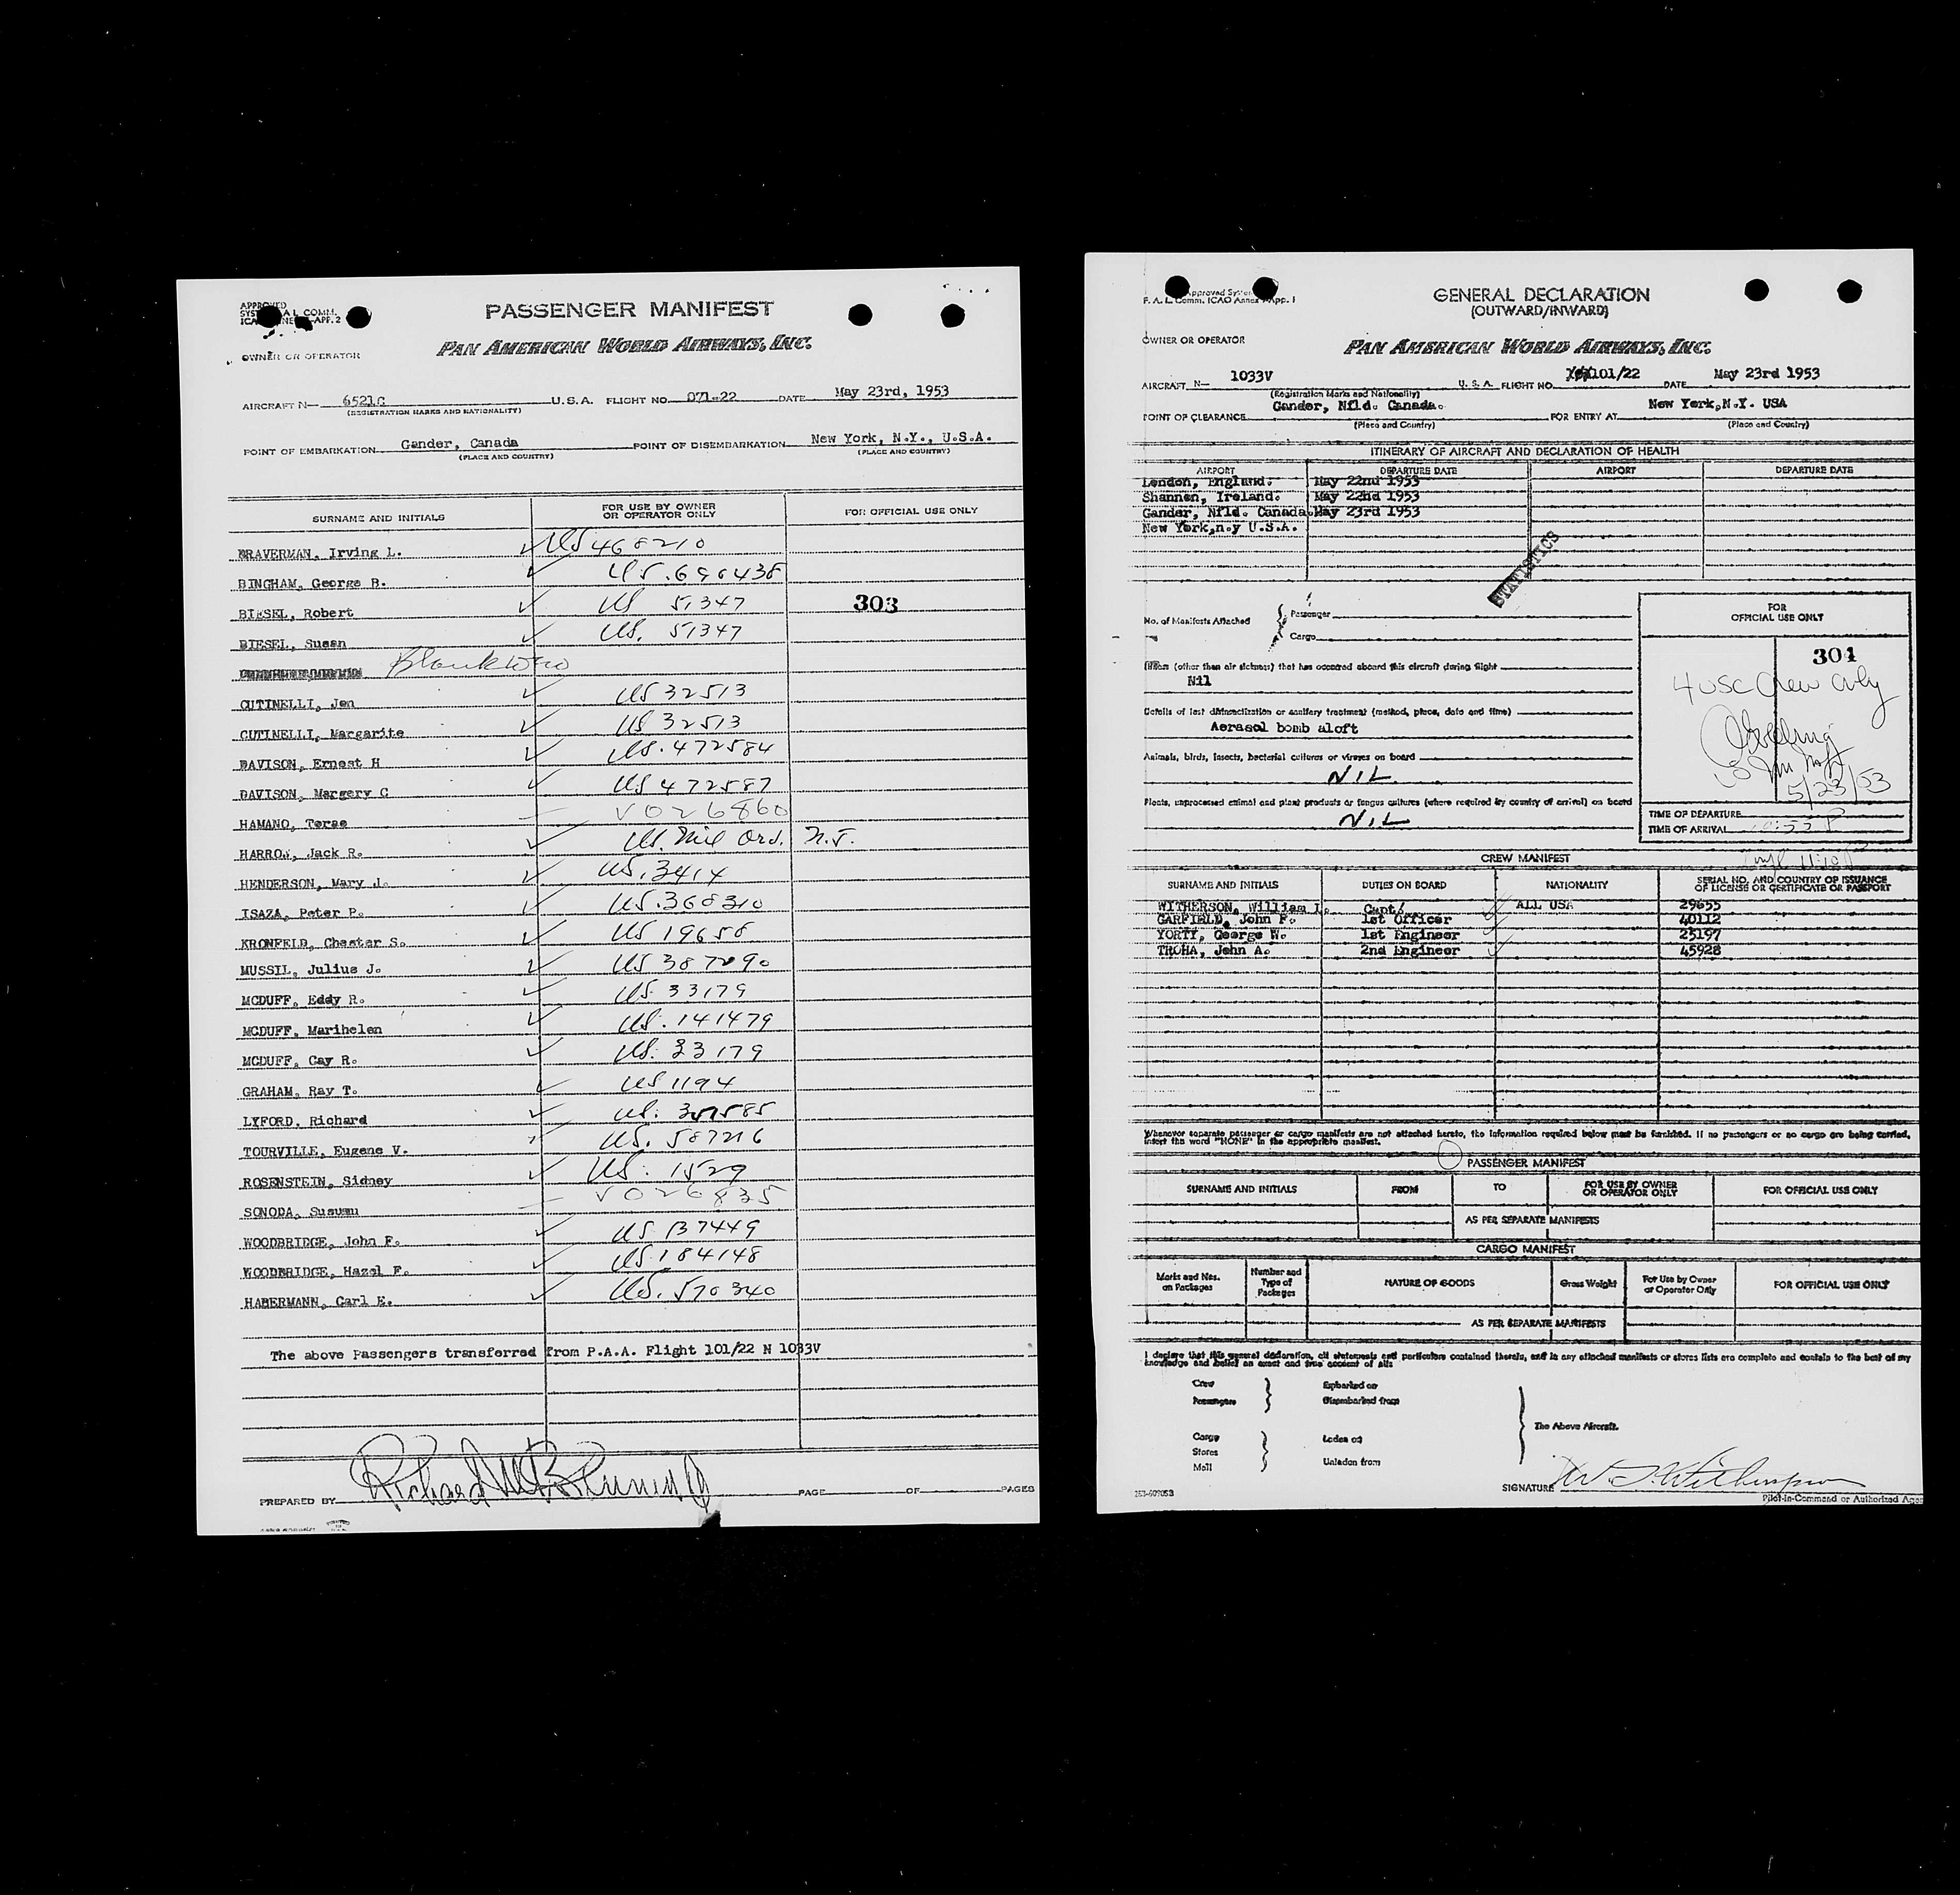 PASSENGER MANIFEST
PAN AMERICAN WORLD AIRWAYS, INC.
OWNER OR OPERATOR
AIRCRAFT N— 6521C U.S.A. FLIGHT NO. 071-22 DATE May 23rd, 1953
(REGISTRATION MARKS AND NATIONALITY)
POINT OF EMBARKATION Gander, Canada POINT OF DISEMBARKATION New York, N.Y., U.S.A.
(PLACE AND COUNTRY) (PLACE AND COUNTRY)
SURNAME AND INITIALS FOR USE BY OWNER OR OPERATOR ONLY FOR OFFICIAL USE ONLY
BRAVERMAN, Irving L. US 468210
BINGHAM, George B. US.696438
BIESEL, Robert US 51347 303
BIESEL, Susan US. 51347
CUTINELLI, Jen US 32513
CUTINELLI, Margarite US 32513
DAVISON, Ernest H US.472584
DAVISON, Margery C US 472587
HAMANO, Terae V026860
HARROW, Jack R. US. Mil Ord. N.J.
HENDERSON, Mary J. US.3414
ISAZA, Peter P. US.368310
KRONFELD, Chester S. US 19658
MUSSIL, Julius J. US 387290
MCDUFF, Eddy R. US 33179
MCDUFF, Marihelen US.141479
MCDUFF, Cay R. US. 33179
GRAHAM, Ray T. US 1194
LYFORD, Richard US. 357585
TOURVILLE, Eugene V. US. 587216
ROSENSTEIN, Sidney US. 1529
SONODA, Susumu V026835
WOODBRIDGE, John F. US 137449
WOODBRIDGE, Hazel F. US 184148
HABERMANN, Carl E. US. 570340
The above Passengers transferred from P.A.A. Flight 101/22 N 1033V
PREPARED BY PAGE OF PAGES
Approved System
F. A. L. Comm. ICAO Annex App. 1
GENERAL DECLARATION
(OUTWARD/INWARD)
OWNER OR OPERATOR
PAN AMERICAN WORLD AIRWAYS, INC.
AIRCRAFT N— 1033V U. S. A. FLIGHT NO. 101/22 DATE May 23rd 1953
(Registration Marks and Nationality)
POINT OF CLEARANCE Gander, Nfld. Canada. FOR ENTRY AT New York,N.Y. USA
(Place and Country) (Place and Country)
ITINERARY OF AIRCRAFT AND DECLARATION OF HEALTH
AIRPORT DEPARTURE DATE AIRPORT DEPARTURE DATE
London, England. May 22nd 1953
Shannon, Ireland. May 22nd 1953
Gander, Nfld. Canada. May 23rd 1953
New York,n.y U.S.A.
STATISTICS
No. of Manifests Attached
Passenger
Cargo
FOR OFFICIAL USE ONLY
304
4 USC Crew Only
5/23/53
Illness (other than air sickness) that has occurred aboard this aircraft during flight
Nil
Details of last disinsectization or sanitary treatment (method, place, date and time)
Aerosol bomb aloft
Animals, birds, insects, bacterial cultures or viruses on board
NIL
Plants, unprocessed animal and plant products or fungus cultures (where required by country of arrival) on board
NIL
TIME OF DEPARTURE
TIME OF ARRIVAL
CREW MANIFEST
SURNAME AND INITIALS DUTIES ON BOARD NATIONALITY SERIAL NO. AND COUNTRY OF ISSUANCE OF LICENSE OR CERTIFICATE OR PASSPORT
WITHERSON, William I. Capt. ALL USA 29655
GARFIELD, John F. 1st Officer 40112
YORTY, George W. 1st Engineer 25197
TROHA, John A. 2nd Engineer 45928
Whenever separate passenger or cargo manifests are not attached hereto, the information required below must be furnished. If no passengers or no cargo are being carried,
insert the word "NONE" in the appropriate manifest.
PASSENGER MANIFEST
SURNAME AND INITIALS FROM TO FOR USE BY OWNER OR OPERATOR ONLY FOR OFFICIAL USE ONLY
AS PER SEPARATE MANIFESTS
CARGO MANIFEST
Marks and Nos. on Packages Number and Type of Packages NATURE OF GOODS Gross Weight For Use by Owner or Operator Only FOR OFFICIAL USE ONLY
AS PER SEPARATE MANIFESTS
I declare that this general declaration, all statements and particulars contained therein, and in any attached manifests or stores lists are complete and contain to the best of my
knowledge and belief an exact and true account of all:
Crew Embarked on
Passengers Disembarked from
The Above Aircraft.
Cargo Laden on
Stores
Mail Unladen from
SIGNATURE
Pilot-in-Command or Authorized Agent